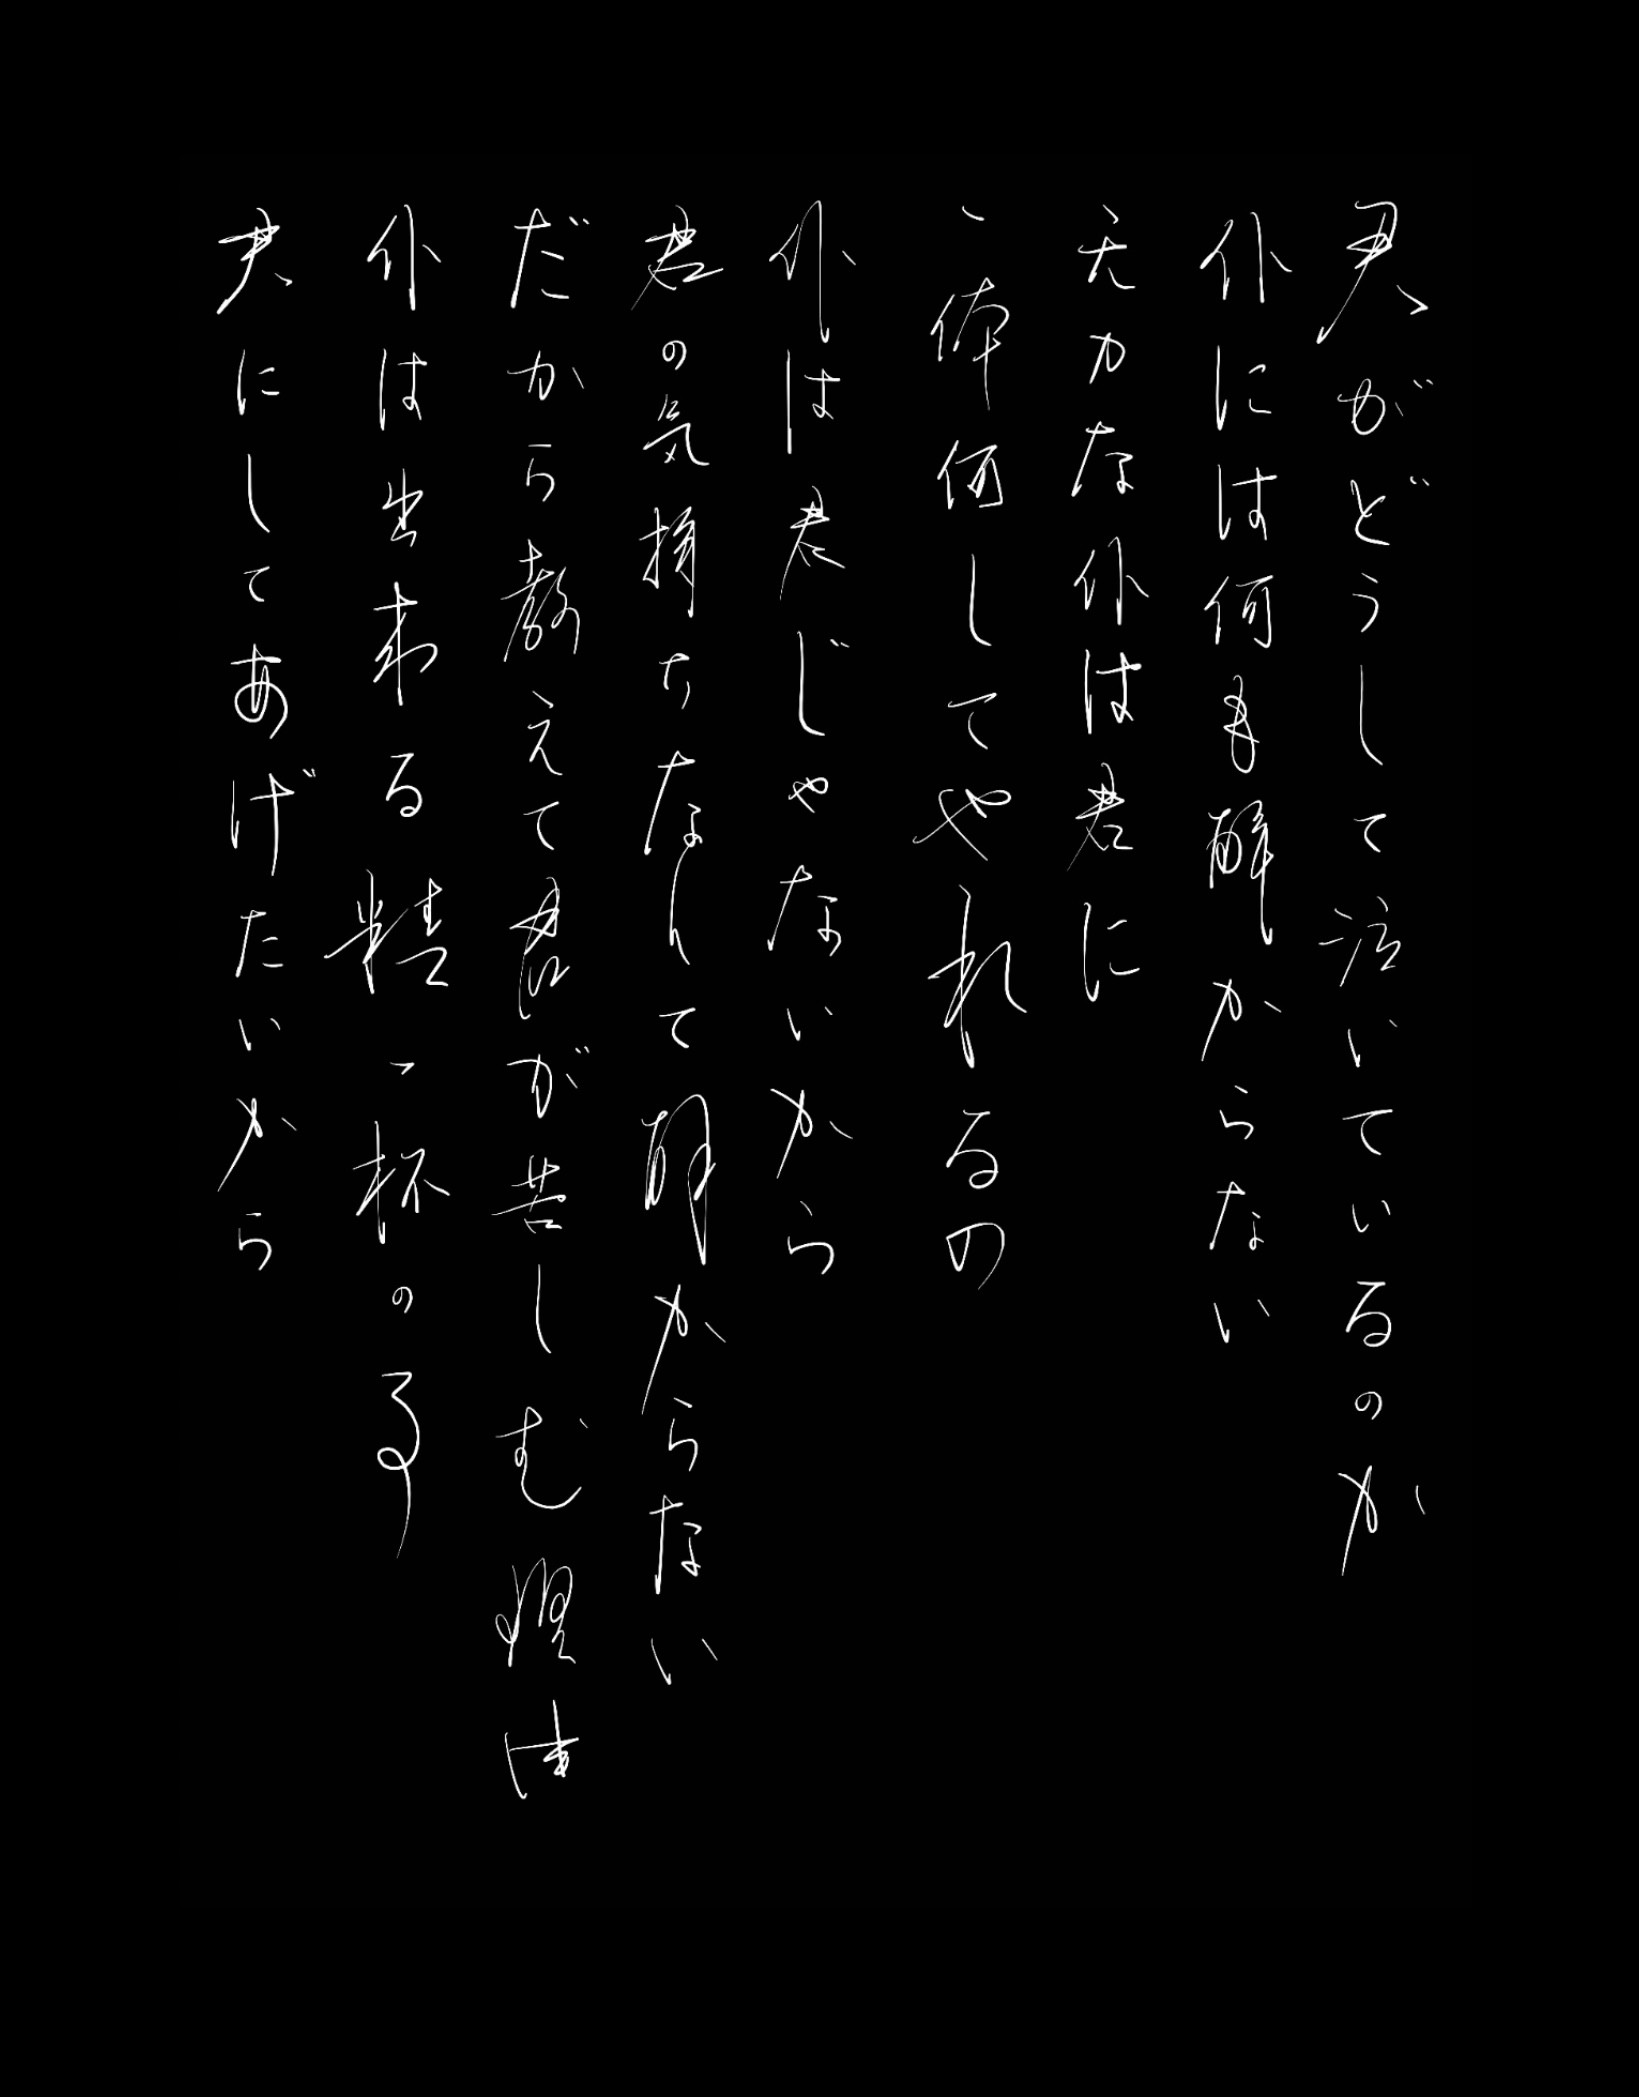 君がどうして泣いているのか
仆には何も解からない
无力な仆は君に
一体何してやれるの
仆は君じゃないから
君の気持ちなんて解からない
だから教えて君が苦しむ理由
仆は出来る精一杯の事
君にしてあげたいから